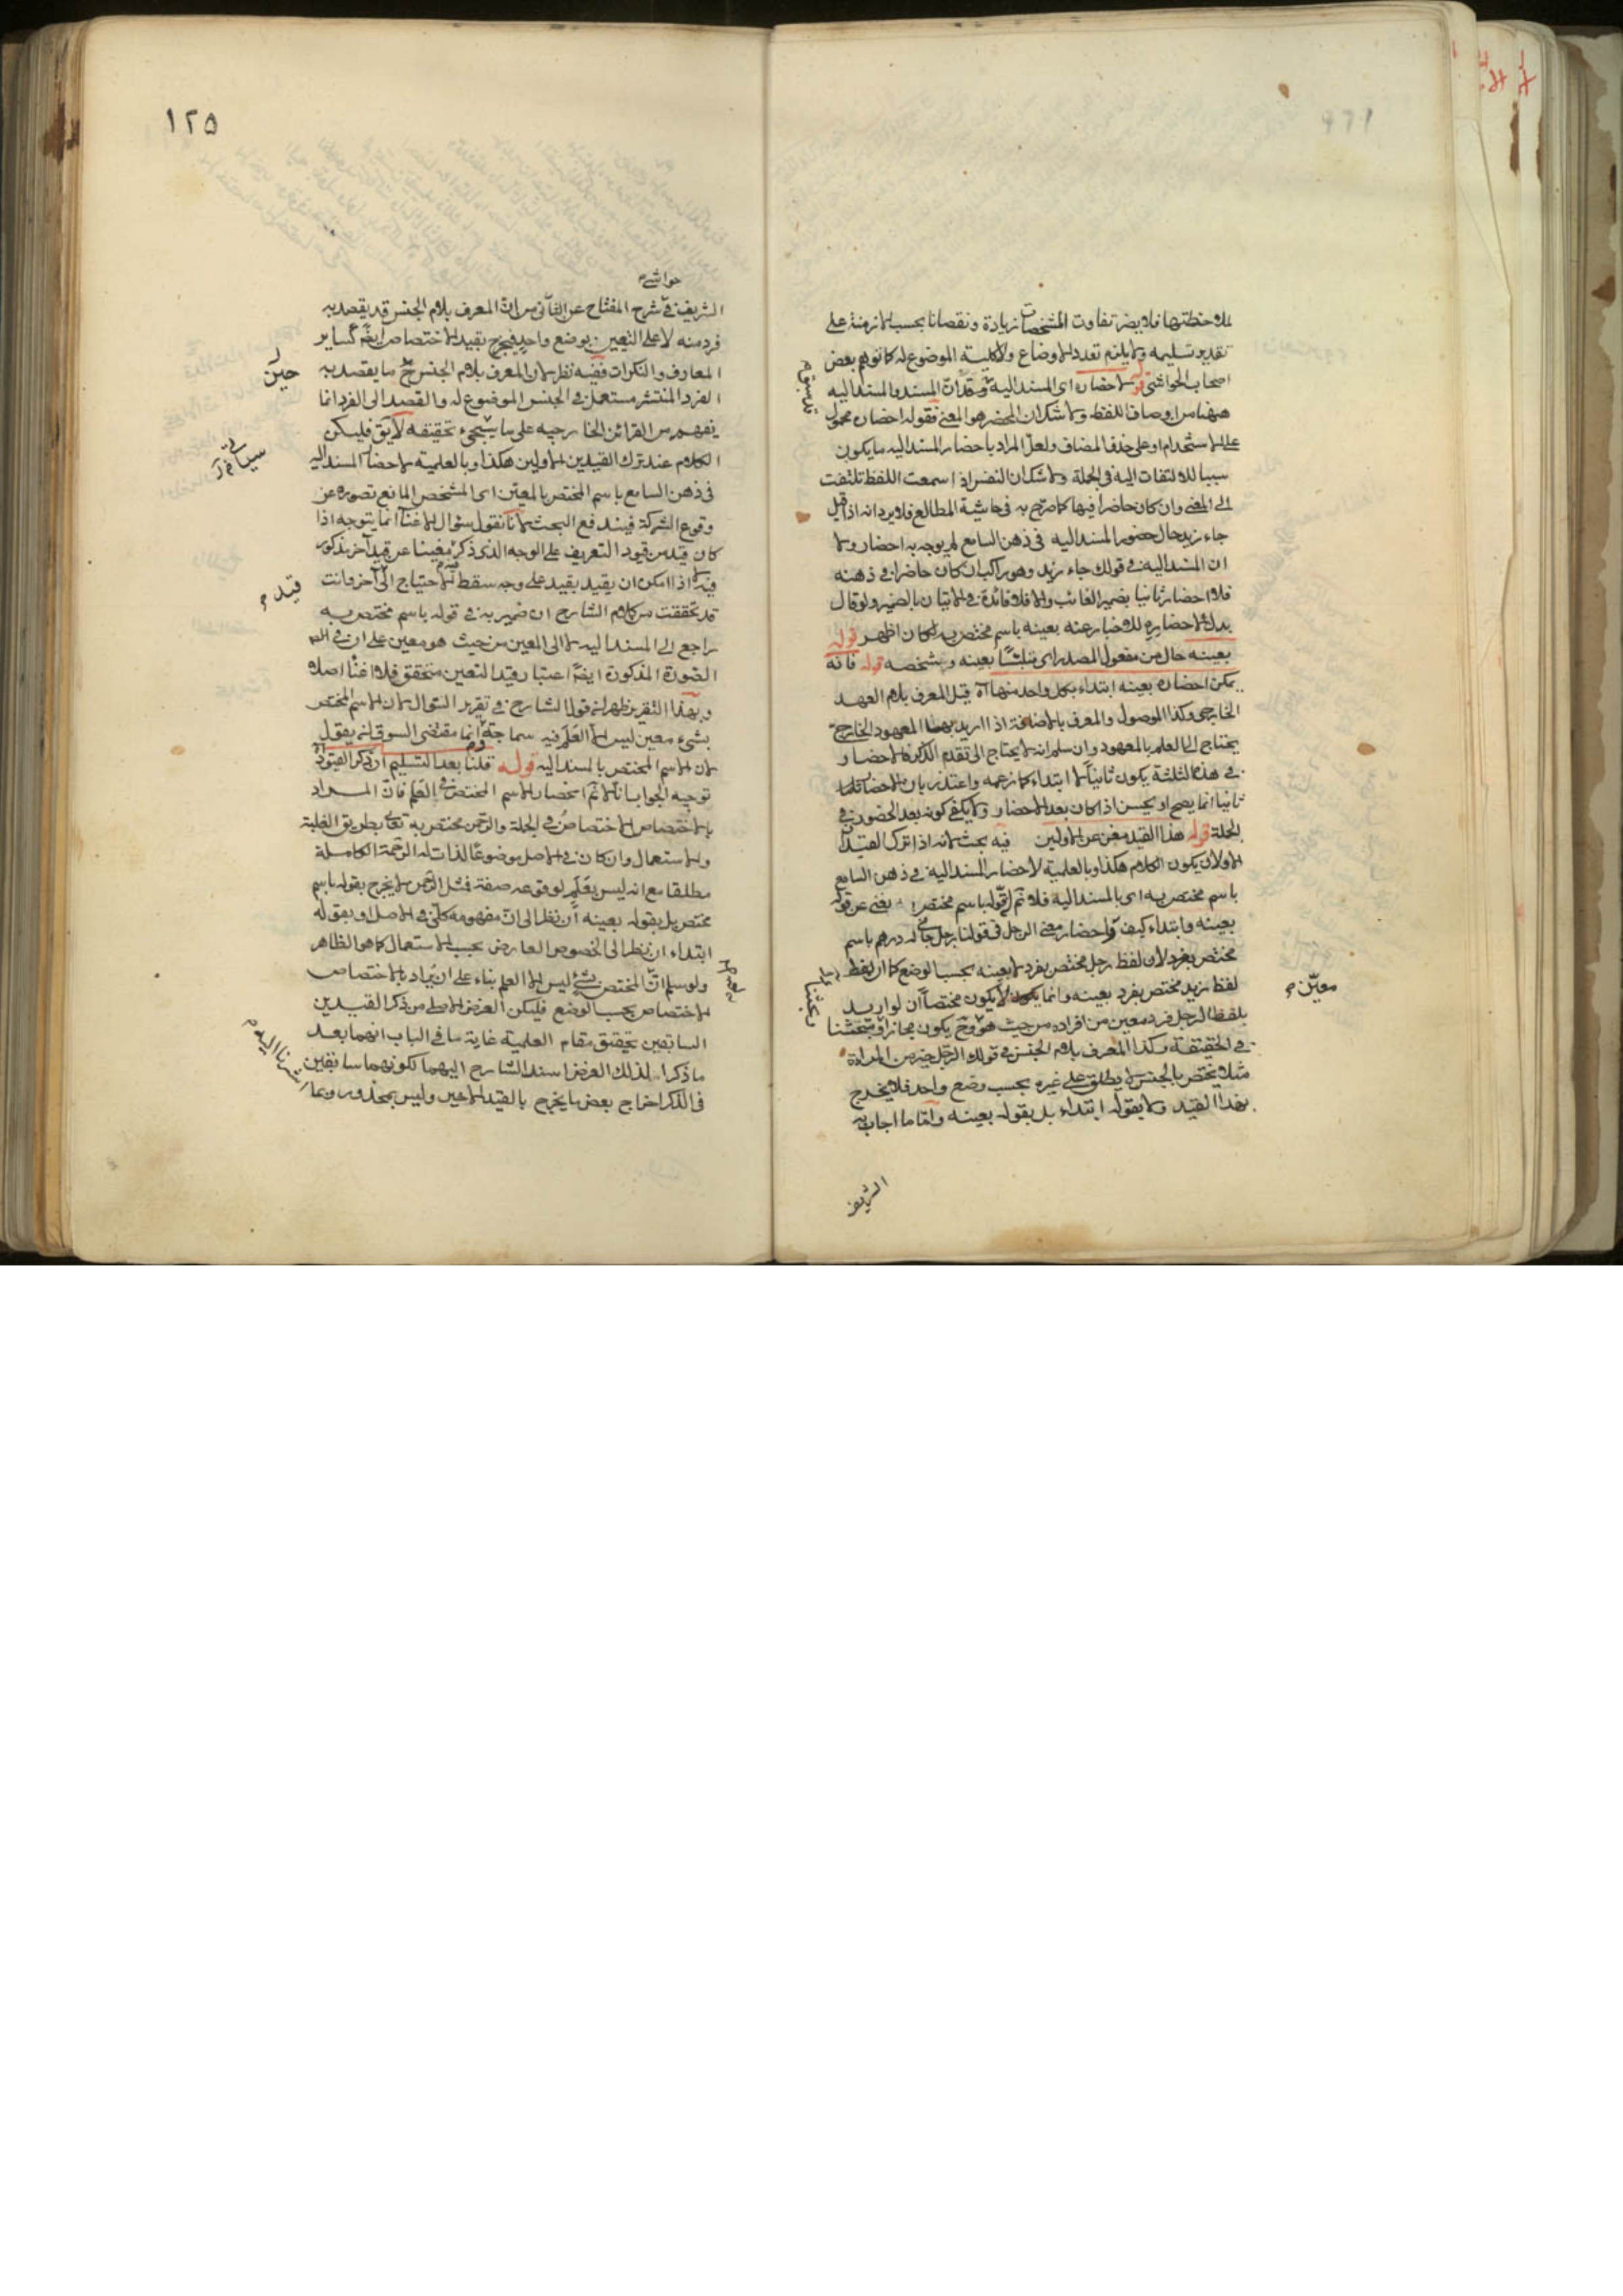 لملاحظتها فلا يضر تفاوت المشخصات زيادة ونقصانا بحسب الازمنة على
تقدير تسليمه ولا يلزم تعدد الاوضاع ولا كلية الموضوع له كما توهم بعض
اصحاب الحواشي قوله لاحضاره اى المسند اليه وقد ان المسند والمسند اليه
ههنا من اوصاف اللفظ ولا شك ان المحضر هو المعنى فقوله احضاره محمول
على الاستخدام او على حذف المضاف ولعل المراد باحضار المسند اليه ما يكون
سببا للالتفات اليه في الجملة ولا شك ان النفس اذا سمعت اللفظ تلتفت
الى المعنى وان كان حاضرا فيها كما صرح به في حاشية المطالع فلا يرد انه اذا قيل
جاء زيد حال حضور المسند اليه في ذهن السامع لم يوجد به احضار ولا
ان المسند اليه في قولك جاء زيد وهو راكب ان كان حاضرا في ذهنه
فلا احضار ثانيا بضمير الغائب والا فلا فائدة في الاتيان بالضمير ولو قال
بدل لاحضاره للاخبار عنه بعينه باسم مختص به لكان اظهر قوله
بعينه حال من مفعول المصدر اى متلبسا بعينه وبشخصه قوله فانه
يمكن احضاره بعينه ابتداء بكل واحد منها اه قيل المعرف بلام العهد
الخارجي وكذا الموصول والمعرف بالاضافة اذا اريد بهما المعهود الخارجي
يحتاج الى العلم بالمعهود وان سلم انه لا يحتاج الى تقدم الذكر فالاحضار
في هذه الثلثة يكون ثانيا لا ابتداء كما زعمه واعتذر بان الاحضار
ثانيا انما يصح او يحسن اذا كان بعد الاحضار ولا يكفي كونه بعد الحضور في
الجملة قوله هذا القيد مغن عن الاولين فيه بحث لانه اذا ترك القيدان
الاولان يكون الكلام هكذا وبالعلمية لاحضار المسند اليه في ذهن السامع
باسم مختص به اى بالمسند اليه فلا نم ان قوله باسم مختص به يغنى عن قوله
بعينه وابتداء كيف واحضار معنى الرجل في قولنا رجل جاءنى له درهم باسم
مختص بفرد لان لفظ رجل مختص بفرد لا بعينه بحسب الوضع كما ان لفظ
لفظ زيد مختص بفرد بعينه وانما لا يكون مختصا ان لو اريد
بلفظ الرجل فرد معين من افراده من حيث هو وح يكون مجازا
في الحقيقة وكذا المعرف بلام الجنس في قولك الرجل خير من المراة
مثلا مختص بالجنس لا يطلق على غيره بحسب وضع واحد فلا يخرج
بهذا القيد ولا بقوله ابتداء بل بقوله بعينه واما ما اجاب به
الشريف
معين
١٢٥
حواشى
الشريف في شرح المفتاح عن الثاني من ان المعرف بلام الجنس قد يقصد به
فرد منه لا على التعيين بوضع واحد فيخرج بقيد الاختصاص ايضا كساير
المعارف والنكرات ففيه نظر لان المعرف بلام الجنس ما يقصد به
الفرد المنتشر مستعمل في الجنس الموضوع له والقصد الى الفرد انما
يفهم من القرائن الخارجيه على ما سيجيء تحقيقه لا يق فليكن
الكلام عند ترك القيدين الاولين هكذا وبالعلمية لاحضار المسند اليه
في ذهن السامع باسم المختص بالمعين اى المشخص المانع تصوره عن
وقوع الشركة فيندفع البحث لانا نقول سؤال الاغناء انما يتوجه اذا
كان قيد من قيود التعريف على الوجه الذى ذكر مغنيا عن قيد آخر مذكور
فيه لا اذا امكن ان يقيد بقيد على وجه سقط الاحتياج الى آخر وانت
قد تحققت من كلام الشارح ان ضمير به في قوله باسم مختص به
راجع الى المسند اليه لا الى المعين من حيث هو معين على ان في
الصورة المذكورة ايضا اعتبار قيد التعيين متحقق فلا اغناء اصلا
وبهذا التقرير ظهر ان قول الشارح في تقرير السؤال لان الاسم المختص
بشيء معين ليس الا العلم فيه سماجة انما مقتضى السوق ان يقول
لان الاسم المختص بالمسند اليه قوله قلنا بعد التسليم ان ذكر القيود
توجيه الجواب انا لا نم انحصار الاسم المختص في العلم فان المراد
بالاختصاص الاختصاص في الجملة والرحمن مختص به تعالى بطريق الغلبة
والاستعمال وان كان في الاصل موضوعا لذات له الرحمة الكاملة
مطلقا مع انه ليس بعلم لوقوعه صفة فمثل الرحمن لا يخرج بقوله باسم
مختص بل بقوله بعينه ان نظر الى ان مفهومه كلى في الاصل او بقوله
ابتداء ان نظر الى الخصوص العارض بحسب الاستعمال كما هو الظاهر
ولو سلم ان المختص بشئ ليس الا العلم بناء على ان يراد بالاختصاص
الاختصاص بحسب الوضع فليكن الغرض الاصلى من ذكر القيدين
السابقين تحقيق مقام العلمية غاية ما في الباب انهما بعد
ما ذكرا لذلك الغرض اسند الشارح اليهما لكونهما سابقين
في الذكر اخراج بعض ما يخرج بالقيد الاخير وليس بمحذور وبما
حين
قيد
اشرنا اليه